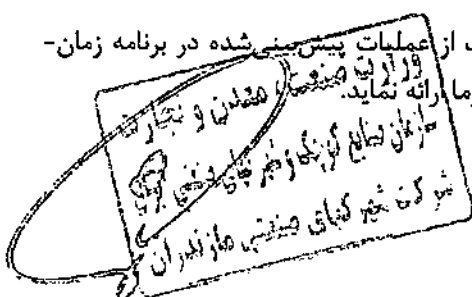 از عملیات پیش‌بینی‌شده در برنامه زمان-
ارائه نماید.
وزارت صنعت، معدن و تجارت
سازمان صنایع کوچک و شهرکهای صنعتی ایران
شرکت شهرکهای صنعتی مازندران